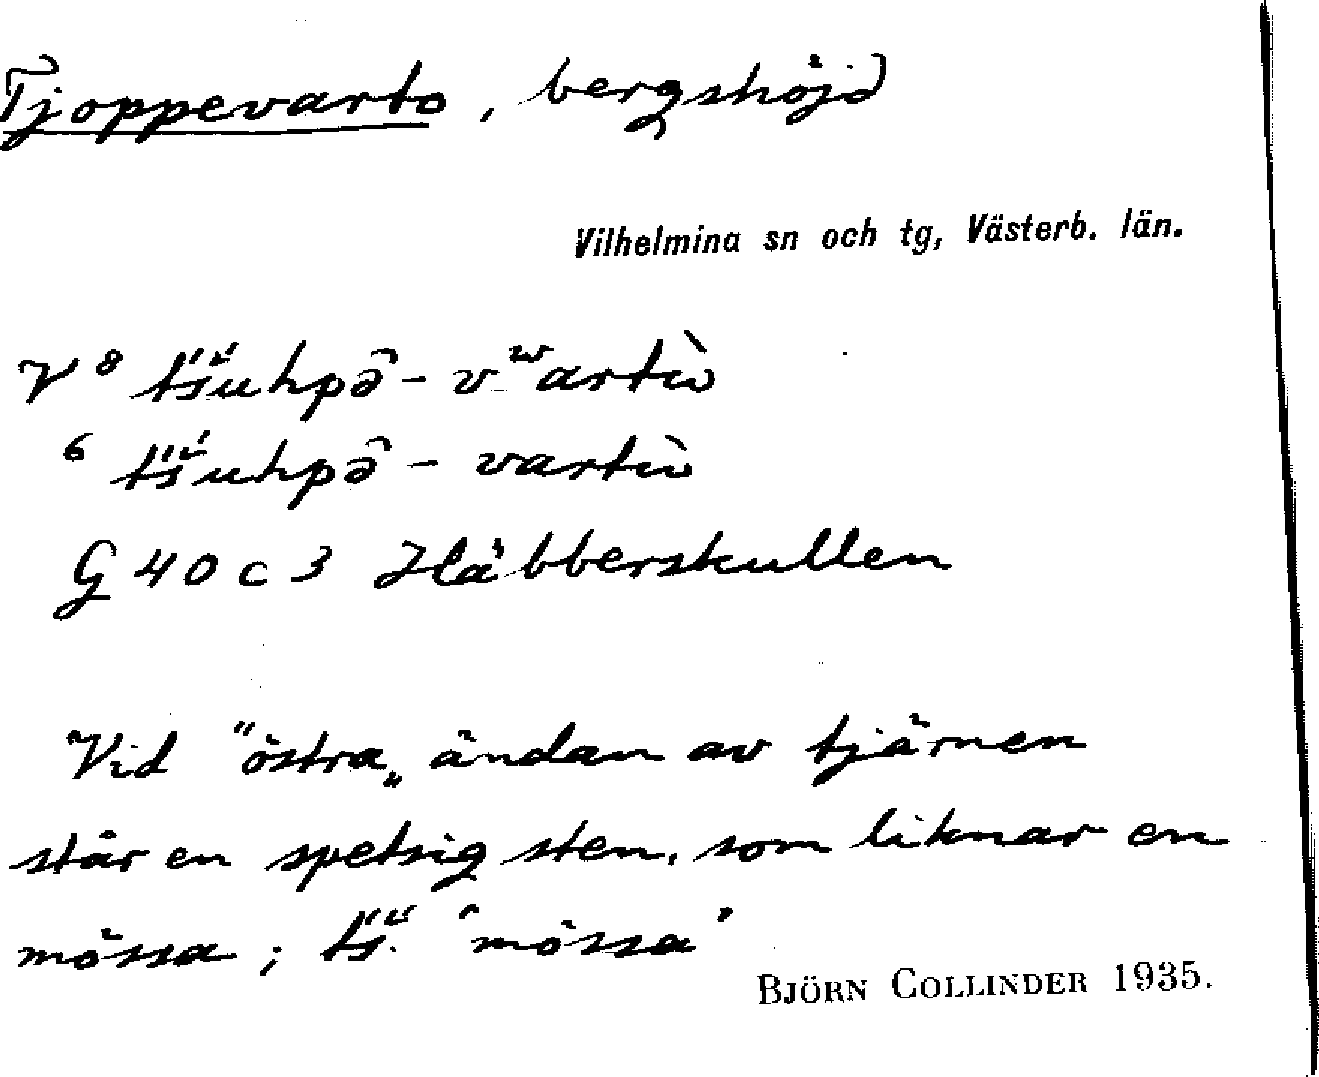 Tjoppevarto, bergshöjd
Vilhelmina sn och tg, Västerb. län.
V⁸ tš́uhpə̑ - vʷartù
⁶ tš́uhpə̑ - vartù
G 40 c 3 Häbberskullen
Vid "östra„ ändan av tjärnen
står en spetsig sten, som liknar en
mössa; tš́. 'mössa'
BJÖRN COLLINDER 1935.